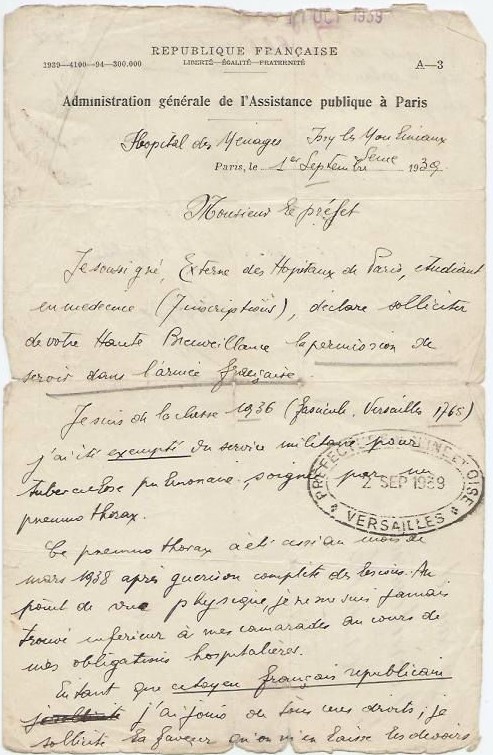 11 OCT 1939
REPUBLIQUE FRANÇAISE
LIBERTÉ—ÉGALITÉ—FRATERNITÉ
1939—4100—94—300.000
A—3
Administration générale de l'Assistance publique à Paris
Hopital des Menages Issy les Moulineaux
Seine
Paris, le 1er Septembre 1939
Monsieur le préfet
Je soussigné, Externe des Hopitaux de Paris, etudiant
en medecine (7 inscriptions), déclare solliciter
de votre Haute Bienveillance la permission de
servir dans l'armée française.
Je suis de la classe 1936 (fascicule Versailles 1765)
j'ai été exempté du service militaire pour
tuberculose pulmonaire, soignée par un
pneumothorax.
PREFECTURE DE SEINE-ET-OISE
2 SEP 1939
VERSAILLES
Ce pneumothorax a été au mois de
mars 1938 après guerison complete des lesions. Au
point de vue physique je ne me suis jamais
trouvé inferieur à mes camarades au cours de
mes obligations hospitalières.
En tant que citoyen français republicain
j'ai joui de tous mes droits, je
sollicite la faveur qu'on m'en laisse les devoirs